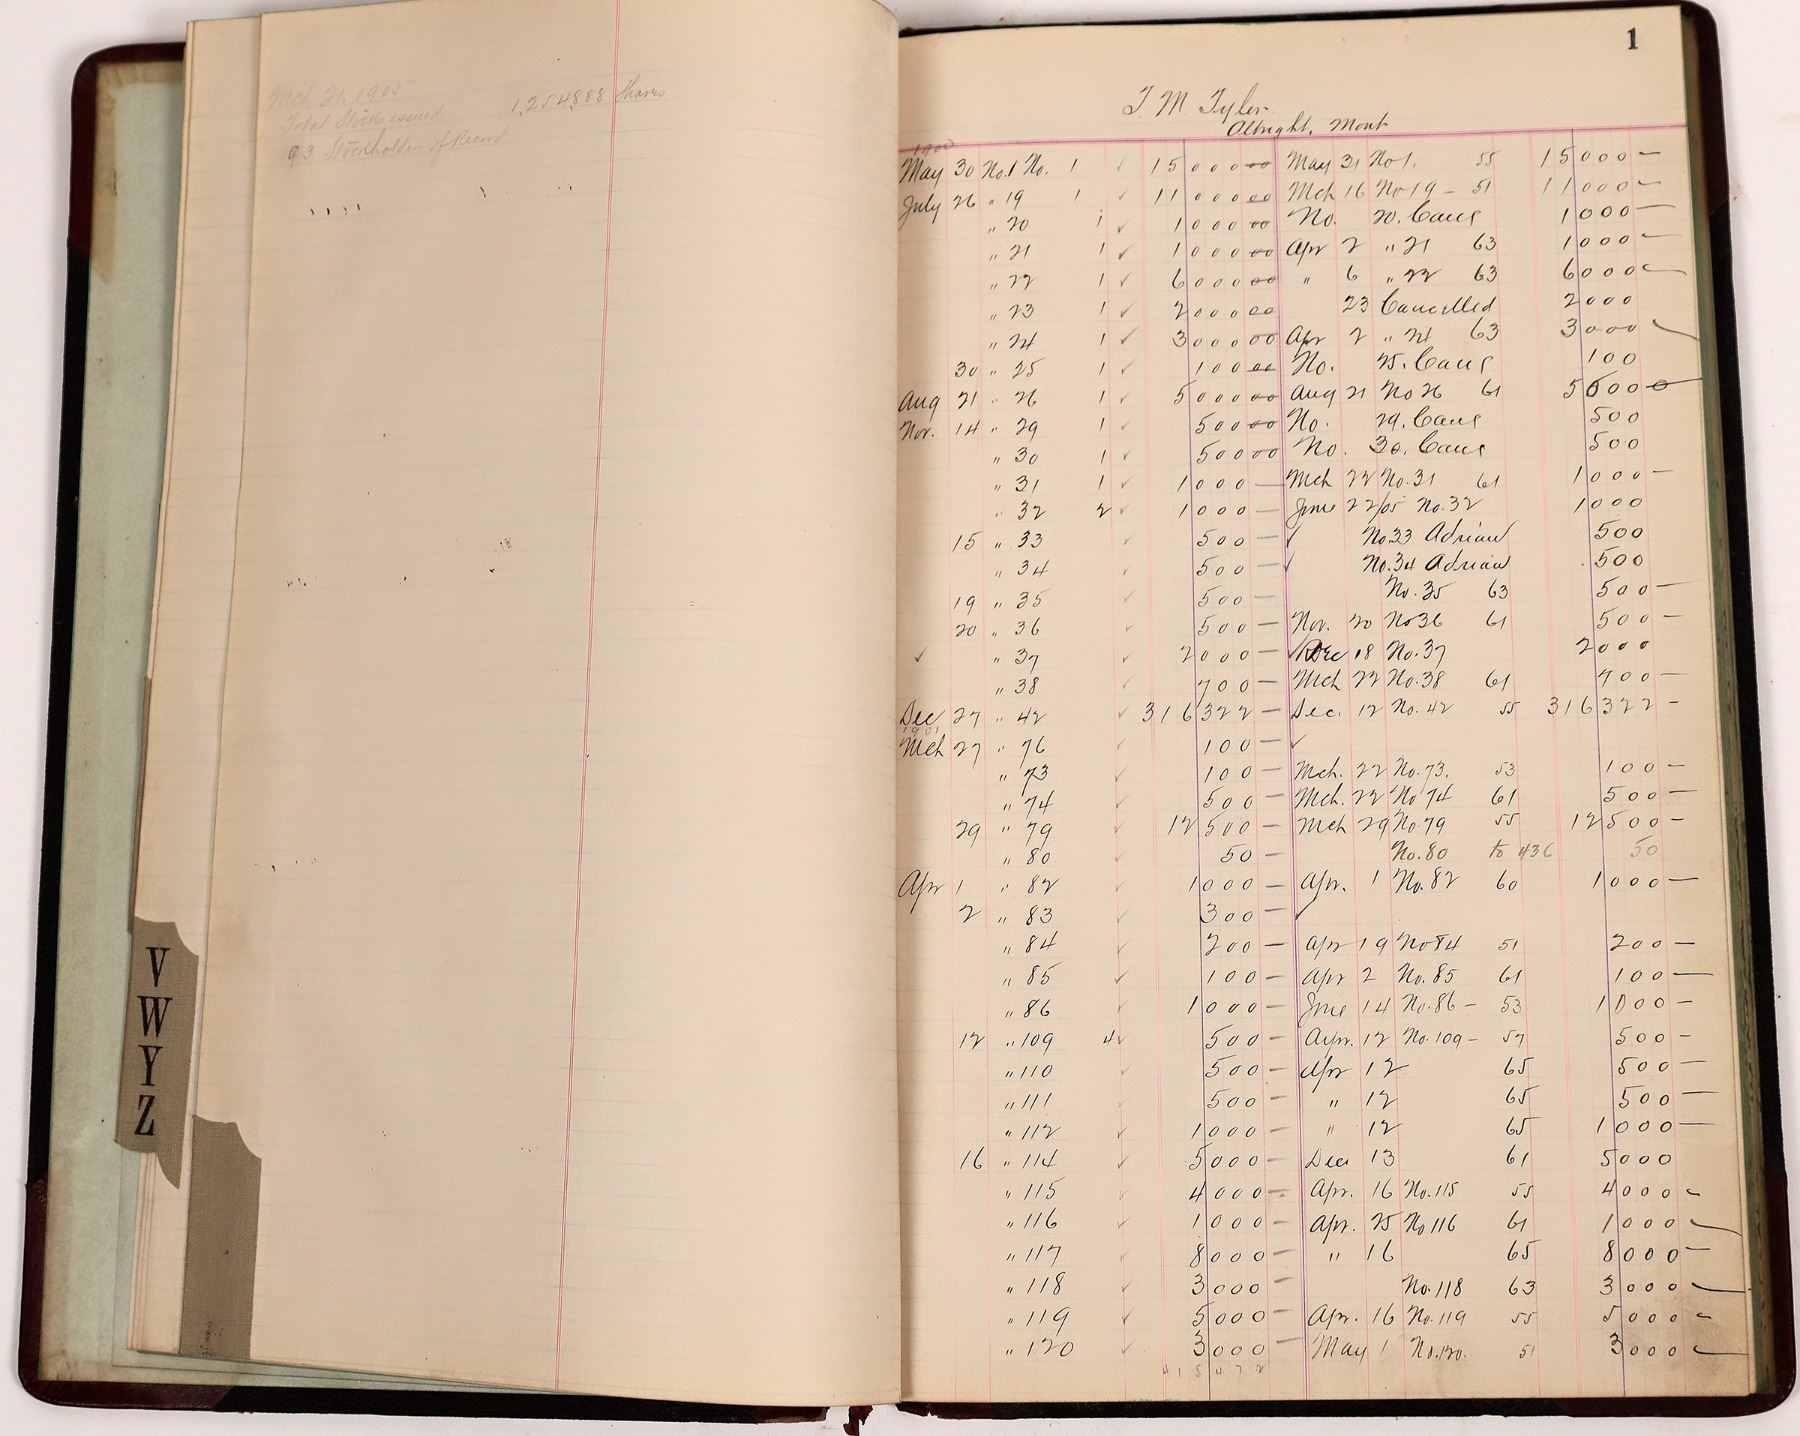 Mch 21, 1905
Total Stock issued 1,254,888 Shares
93 Stockholders of Record
V
W
Y
Z
1
T. M. Tyler
Albright, Mont
1900
May 30 No.1 No. 1 ✓ 15 000 00 May 31 No 1. 55 15 000 —
July 26 " 19 1 ✓ 11 000 00 Mch 16 No 19 - 51 11 000 —
" 20 1 ✓ 1 000 00 No. 20. Canc 1 000 —
" 21 1 ✓ 1 000 00 Apr 2 " 21 63 1 000 —
" 22 1 ✓ 6 000 00 " 6 " 22 63 6 000 —
" 23 1 ✓ 2 000 00 23 Cancelled 2 000
" 24 1 ✓ 3 000 00 Apr 2 " 24 63 3 000
30 " 25 1 ✓ 100 00 No. 25. Canc 100
Aug 21 " 26 1 ✓ 5 000 00 Aug 21 No 26 61 5 000
Nov. 14 " 29 1 ✓ 500 00 No. 29. Canc 500
" 30 1 ✓ 500 00 No. 30. Canc 500
" 31 1 ✓ 1 000 — Mch 22 No. 31 61 1 000 —
" 32 2 ✓ 1 000 — June 22/05 No. 32 1 000
15 " 33 ✓ 500 — ✓ No. 33 Adrian 500
" 34 ✓ 500 — ✓ No. 34 Adrian 500
19 " 35 ✓ 500 — No. 35 63 500 —
20 " 36 ✓ 500 — Nov. 20 No 36 61 500 —
✓ " 37 ✓ 2 000 — ✓ Dec 18 No. 37 2 000
" 38 ✓ 700 — Mch 22 No. 38 61 700 —
Dec 27 " 42 ✓ 316 322 — Dec. 12 No. 42 55 316 322 -
1901
Mch 27 " 76 ✓ 100 — ✓
" 73 ✓ 100 — Mch. 22 No. 73. 53 100 —
" 74 ✓ 500 — Mch. 22 No 74 61 500 —
29 " 79 ✓ 12 500 — Mch 29 No. 79 55 12 500 —
" 80 ✓ 50 — No. 80 to 436 50
Apr 1 " 82 ✓ 1 000 — Apr. 1 No. 82 60 1 000 —
2 " 83 ✓ 300 — ✓
" 84 ✓ 200 — Apr 19 No 84 51 200 —
" 85 ✓ 100 — Apr 2 No. 85 61 100 —
" 86 ✓ 1 000 — June 14 No. 86 - 53 1 000 —
12 " 109 4 ✓ 500 — Apr. 12 No. 109 - 57 500 -
" 110 ✓ 500 — Apr 12 65 500 —
" 111 ✓ 500 — " 12 65 500 —
" 112 ✓ 1 000 — " 12 65 1 000 —
16 " 114 ✓ 5 000 — Dec 13 61 5 000
" 115 ✓ 4 000 — Apr. 16 No. 115 55 4 000 -
" 116 ✓ 1 000 — Apr. 25 No 116 61 1 000 —
" 117 ✓ 8 000 — " 16 65 8 000 —
" 118 ✓ 3 000 — No. 118 63 3 000 —
" 119 ✓ 5 000 — Apr. 16 No. 119 55 5 000 —
" 120 ✓ 3 000 — May 1 No. 120. 51 3 000 —
415 472